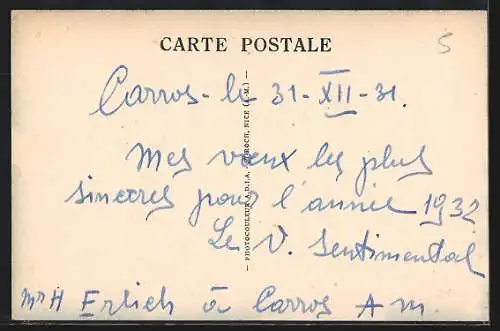 CARTE POSTALE
5
Carros - le 31-XII-31.
Mes vœux les plus
sincères pour l'année 1932
Le V. Sentimental
Mr H Erlich à Carros A m.
PHOTOCOULEUR A.D.I.A. ROCH, NICE (A.-M.)